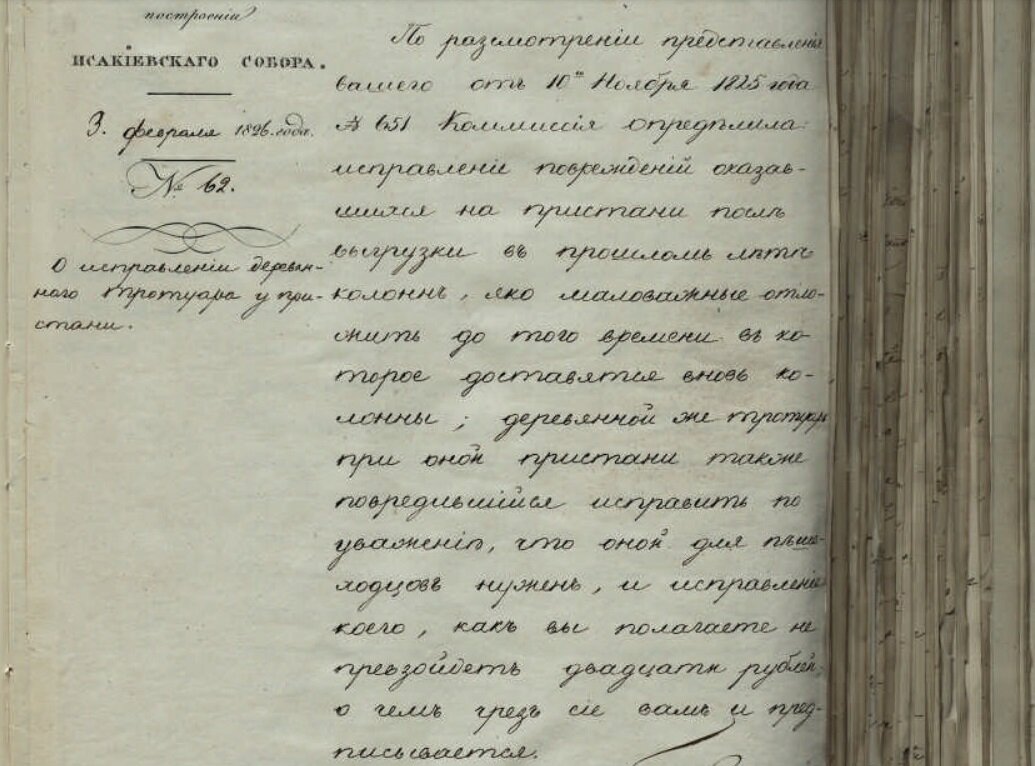 построенія
ИСАКІЕВСКАГО СОБОРА.
3. февраля 1826. года.
№ 62.
О исправленіи деревян-
наго тротуара у при-
стани.
По разсмотреніи представленія
вашего отъ 10го Ноября 1825 года
№ 651 Коммиссія опредѣлила:
исправленіе поврежденій оказав-
шихся на пристани послѣ
выгрузки въ прошломъ лѣтѣ
колоннъ, яко маловажные отло-
жить до того времени въ ко-
торое доставятся вновь ко-
лонны; деревянной же тротуаръ
при оной пристани также
повредившійся исправить по
уваженію, что оной для пѣше-
ходцовъ нуженъ, и исправленіе
коего, какъ вы полагаете не
превзойдетъ двадцати рублей;
о чемъ чрезъ сіе вамъ и пред-
писывается.